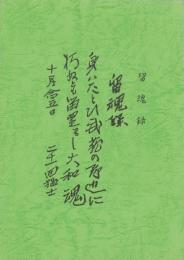 留魂録
留魂録
身ハたとひ武蔵の野辺に
朽ぬとも留置まし大和魂
十月念五日
二十一回猛士